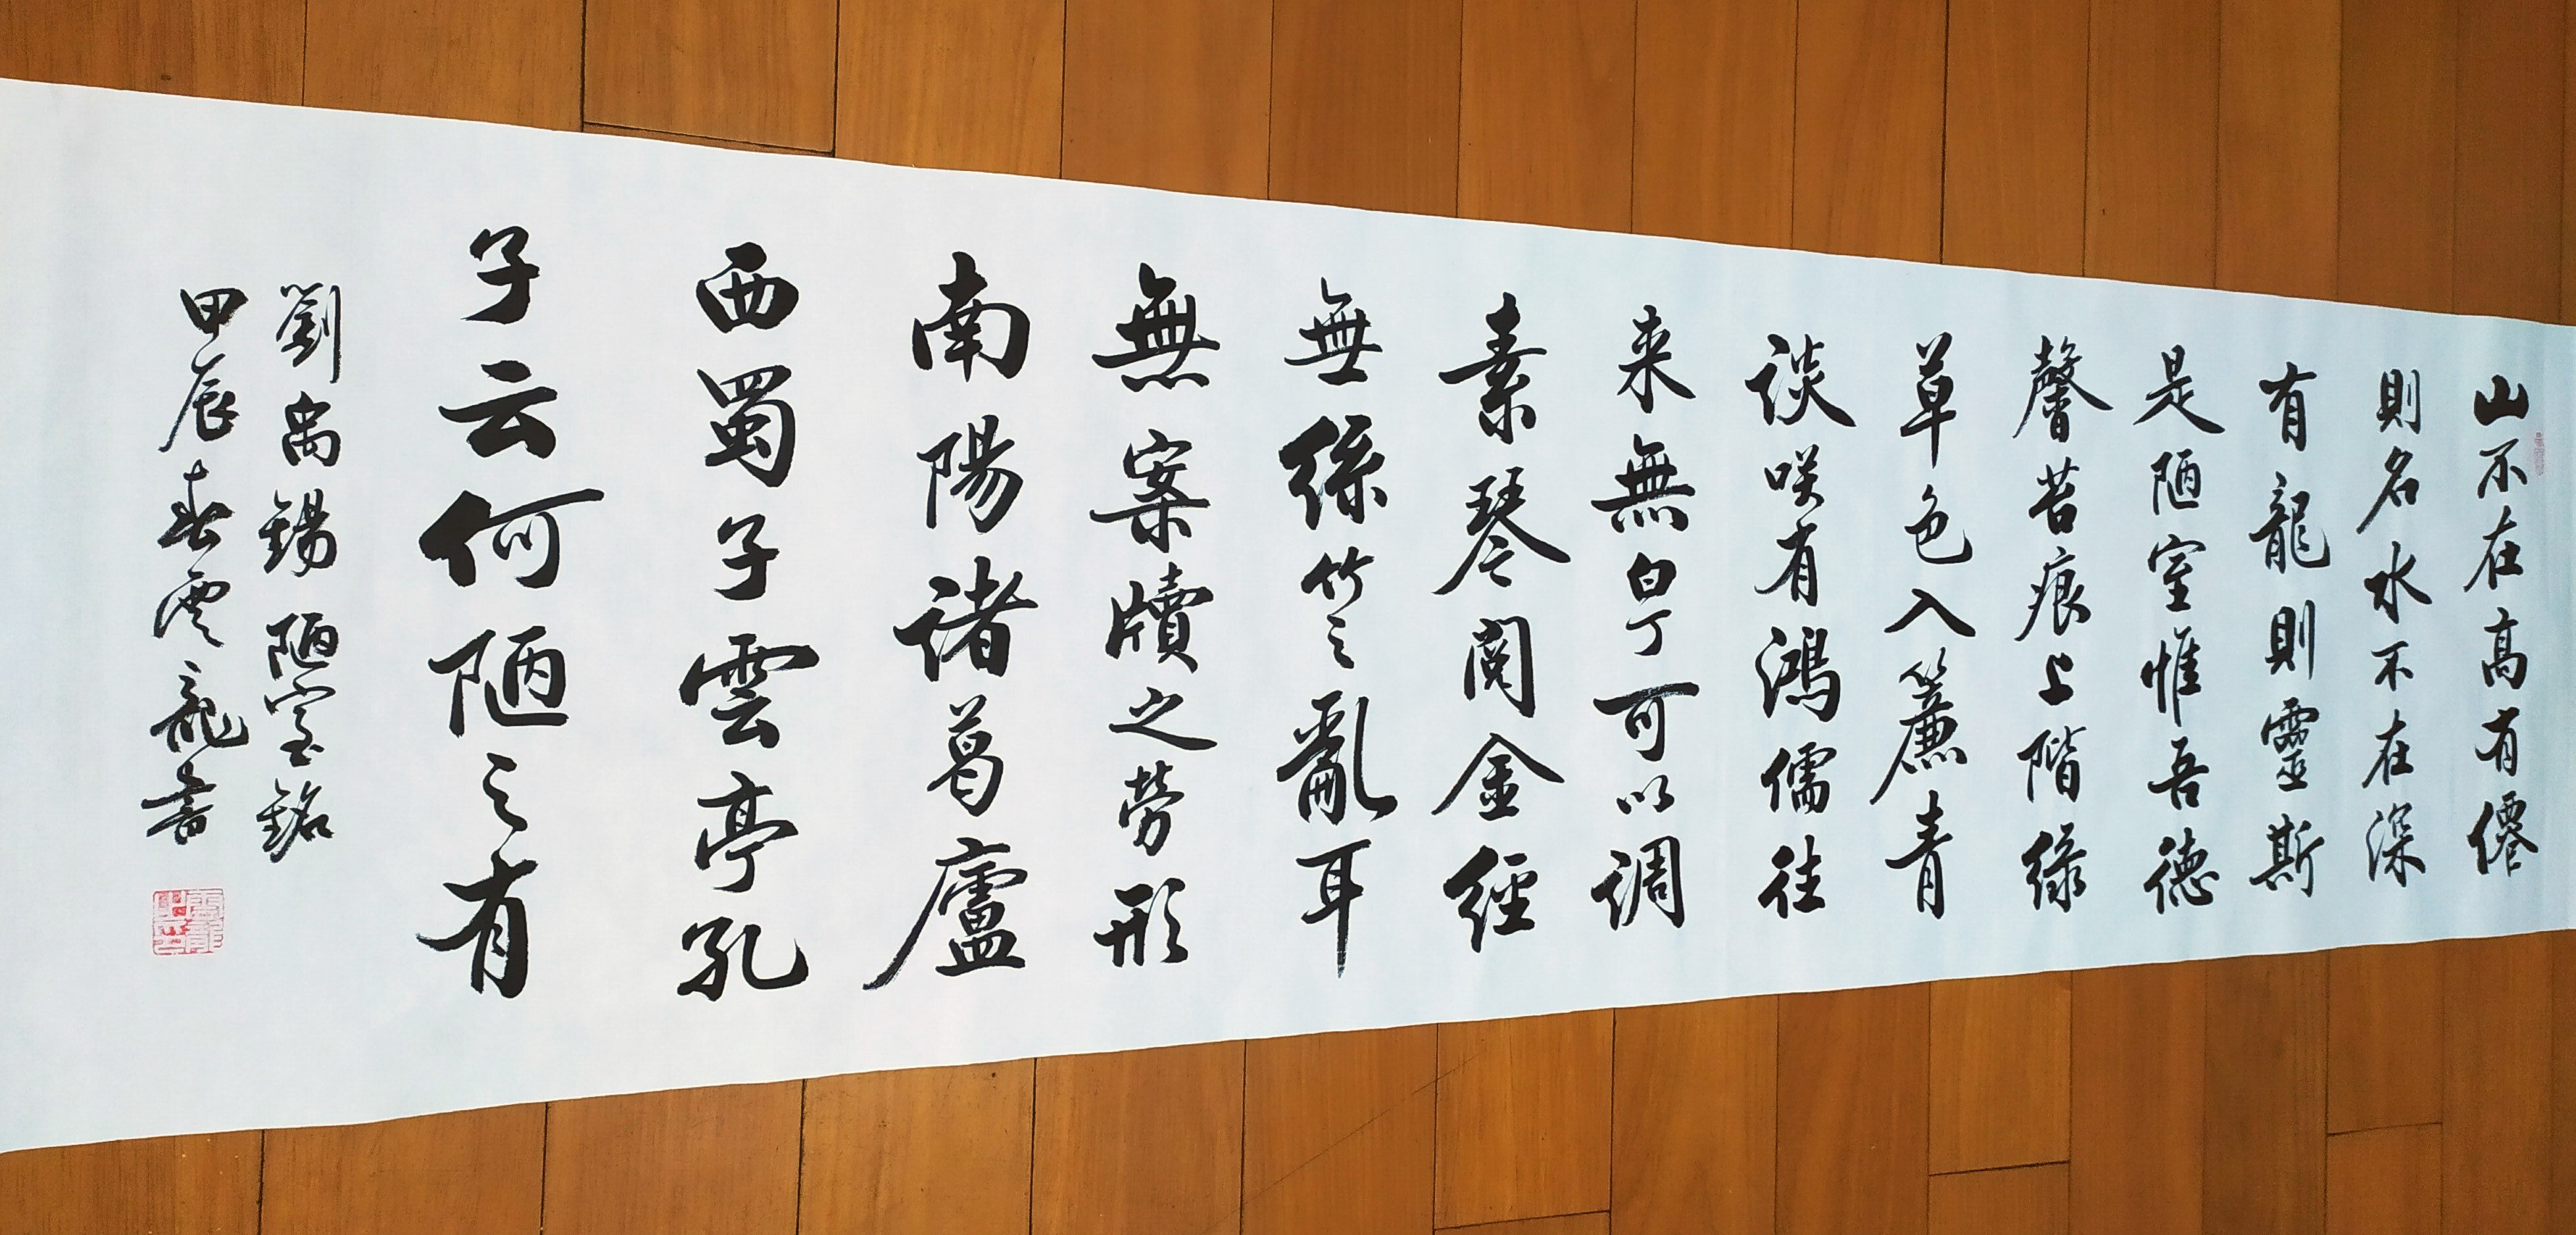 山不在高有僊
則名水不在深
有龍則靈斯
是陋室惟吾德
馨苔痕上階緑
草色入簾青
談咲有鴻儒往
来無白丁可以調
素琴閲金經
無絲竹之亂耳
無案牘之勞形
南陽諸葛廬
西蜀子雲亭孔
子云何陋之有
劉禹錫陋室銘
甲辰春雲龍書